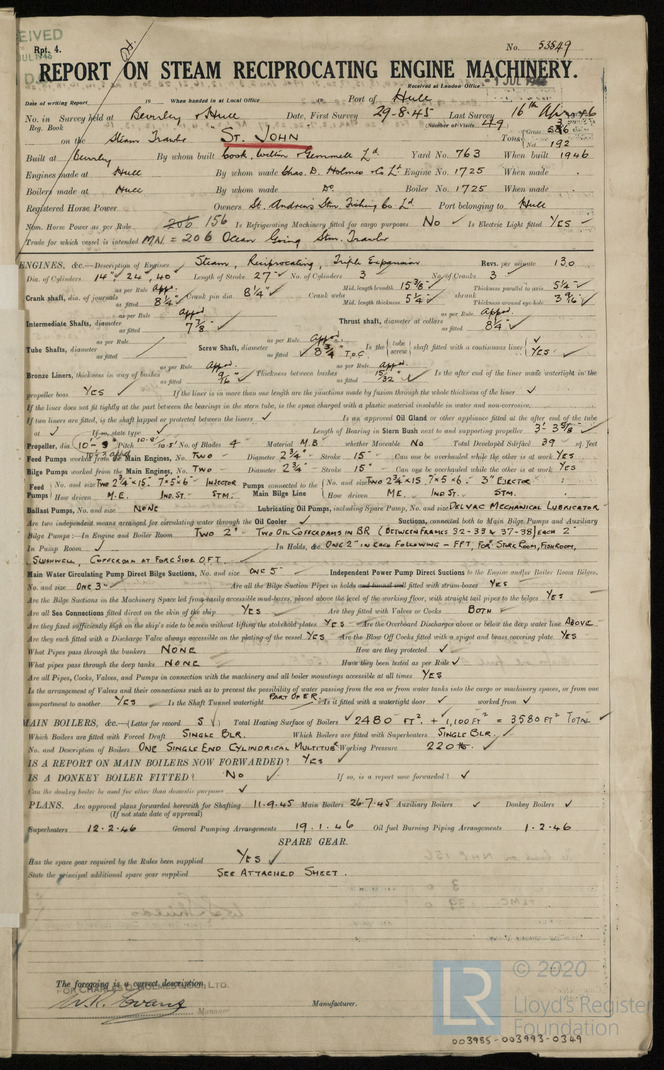 EIVED
Rpt. 4.
JUL 1946
No. 53549
REPORT ON STEAM RECIPROCATING ENGINE MACHINERY.
Received at London Office 1 JUL
Date of writing Report 19 When handed in at Local Office 19 Port of Hull
No. in Survey held at Beverley & Hull Date, First Survey 29-8-45 Last Survey 16th Apr 1946
Reg. Book (Number of Visits 49
on the Steam Trawler "ST. JOHN" Tons Gross
Net 192
Built at Beverley By whom built Cook, Welton Gemmell Ld Yard No. 763 When built 1946
Engines made at Hull By whom made Chas. D. Holmes & Co Lt Engine No. 1725 When made
Boilers made at Hull By whom made Do. Boiler No. 1725 When made
Registered Horse Power Owners St. Andrews Stm. Fishing Co. Ld Port belonging to Hull
Nom. Horse Power as per Rule 206 156 Is Refrigerating Machinery fitted for cargo purposes No Is Electric Light fitted YES
Trade for which vessel is intended MN = 206 Ocean Going Stm. Trawler
ENGINES, &c.—Description of Engines Steam, Reciprocating, Triple Expansion Revs. per minute 130
Dia. of Cylinders 14" 24", 40 Length of Stroke 27" No. of Cylinders 3 No. of Cranks 3
Crank shaft, dia. of journals as per Rule Appd. as fitted 8¼" Crank pin dia. 8¼" Crank webs Mid. length breadth 15⅜" Mid. length thickness 5¼" shrunk Thickness parallel to axis 5¼" Thickness around eye-hole 3 9/16"
Intermediate Shafts, diameter as per Rule Appd. as fitted 7⅞" Thrust shaft, diameter at collars as per Rule Appd. as fitted 8¼"
Tube Shafts, diameter as per Rule as fitted Screw Shaft, diameter as per Rule Appd. as fitted 8¾" T.O.C. Is the { tube screw } shaft fitted with a continuous liner { YES
Bronze Liners, thickness in way of bushes as per Rule Appd. as fitted 9/16" Thickness between bushes as per Rule Appd. as fitted 15/32" Is the after end of the liner made watertight in the
propeller boss YES If the liner is in more than one length are the junctions made by fusion through the whole thickness of the liner
If the liner does not fit tightly at the part between the bearings in the stern tube, is the space charged with a plastic material insoluble in water and non-corrosive
If two liners are fitted, is the shaft lapped or protected between the liners Is an approved Oil Gland or other appliance fitted at the after end of the tube
shaft If so, state type Length of Bearing in Stern Bush next to and supporting propeller 3'-3⅝"
Propeller, dia. 10'-9" Pitch No. of Blades 4 Material M.B whether Moveable No Total Developed Surface 39 sq. feet
Feed Pumps worked from the Main Engines, No. TWO Diameter 2¾" Stroke 15" Can one be overhauled while the other is at work YES
Bilge Pumps worked from the Main Engines, No. TWO Diameter 2¾" Stroke 15" Can one be overhauled while the other is at work YES
Feed Pumps { No. and size TWO 2¾"x15" 7"x5"x6" INJECTOR Pumps connected to the Main Bilge Line { No. and size TWO 2¾"x15" 7"x5"x6" 3" EJECTOR
How driven M.E. IND. ST. STM. How driven M.E. IND ST. STM.
Ballast Pumps, No. and size NONE Lubricating Oil Pumps, including Spare Pump, No. and size DELVAC MECHANICAL LUBRICATOR
Are two independent means arranged for circulating water through the Oil Cooler Suctions, connected both to Main Bilge Pumps and Auxiliary
Bilge Pumps:—In Engine and Boiler Room TWO 2" - TWO OIL COFFERDAMS IN BR (BETWEEN FRAMES 32-33 & 37-38) EACH 2"
In Pump Room In Holds, &c. ONE 2" IN EACH FOLLOWING - FPT, FORD STORE ROOM, FISHROOM,
SLUSHWELL, COFFERDAM AT FORE SIDE OFT
Main Water Circulating Pump Direct Bilge Suctions, No. and size ONE 5" Independent Power Pump Direct Suctions to the Engine and/or Boiler Room Bilges,
No. and size ONE 3" Are all the Bilge Suction Pipes in holds and tunnel well fitted with strum-boxes YES
Are the Bilge Suctions in the Machinery Space led from easily accessible mud-boxes, placed above the level of the working floor, with straight tail pipes to the bilges YES
Are all Sea Connections fitted direct on the skin of the ship YES Are they fitted with Valves or Cocks BOTH
Are they fixed sufficiently high on the ship's side to be seen without lifting the stokehold plates YES Are the Overboard Discharges above or below the deep water line ABOVE
Are they each fitted with a Discharge Valve always accessible on the plating of the vessel YES Are the Blow Off Cocks fitted with a spigot and brass covering plate YES
What Pipes pass through the bunkers NONE How are they protected
What pipes pass through the deep tanks NONE Have they been tested as per Rule
Are all Pipes, Cocks, Valves, and Pumps in connection with the machinery and all boiler mountings accessible at all times YES
Is the arrangement of Valves and their connections such as to prevent the possibility of water passing from the sea or from water tanks into the cargo or machinery spaces, or from one
compartment to another YES Is the Shaft Tunnel watertight PART OF ER. Is it fitted with a watertight door worked from
MAIN BOILERS, &c.—(Letter for record S) Total Heating Surface of Boilers 2480 FT² + 1,100 FT² = 3580 FT² TOTAL
Which Boilers are fitted with Forced Draft SINGLE BLR. Which Boilers are fitted with Superheaters SINGLE BLR.
No. and Description of Boilers ONE SINGLE END CYLINDRICAL MULTITUB Working Pressure 220 lb.
IS A REPORT ON MAIN BOILERS NOW FORWARDED? YES
IS A DONKEY BOILER FITTED? No If so, is a report now forwarded?
Can the donkey boiler be used for other than domestic purposes
PLANS. Are approved plans forwarded herewith for Shafting 11.9.45 Main Boilers 26.7.45 Auxiliary Boilers Donkey Boilers
(If not state date of approval)
Superheaters 12.2.46 General Pumping Arrangements 19.1.46 Oil fuel Burning Piping Arrangements 1.2.46
SPARE GEAR.
Has the spare gear required by the Rules been supplied YES
State the principal additional spare gear supplied SEE ATTACHED SHEET.
The foregoing is a correct description,
W.R. Evans Manager Manufacturer.
LR © 2020
Lloyd's Register
Foundation
003955-003993-0349